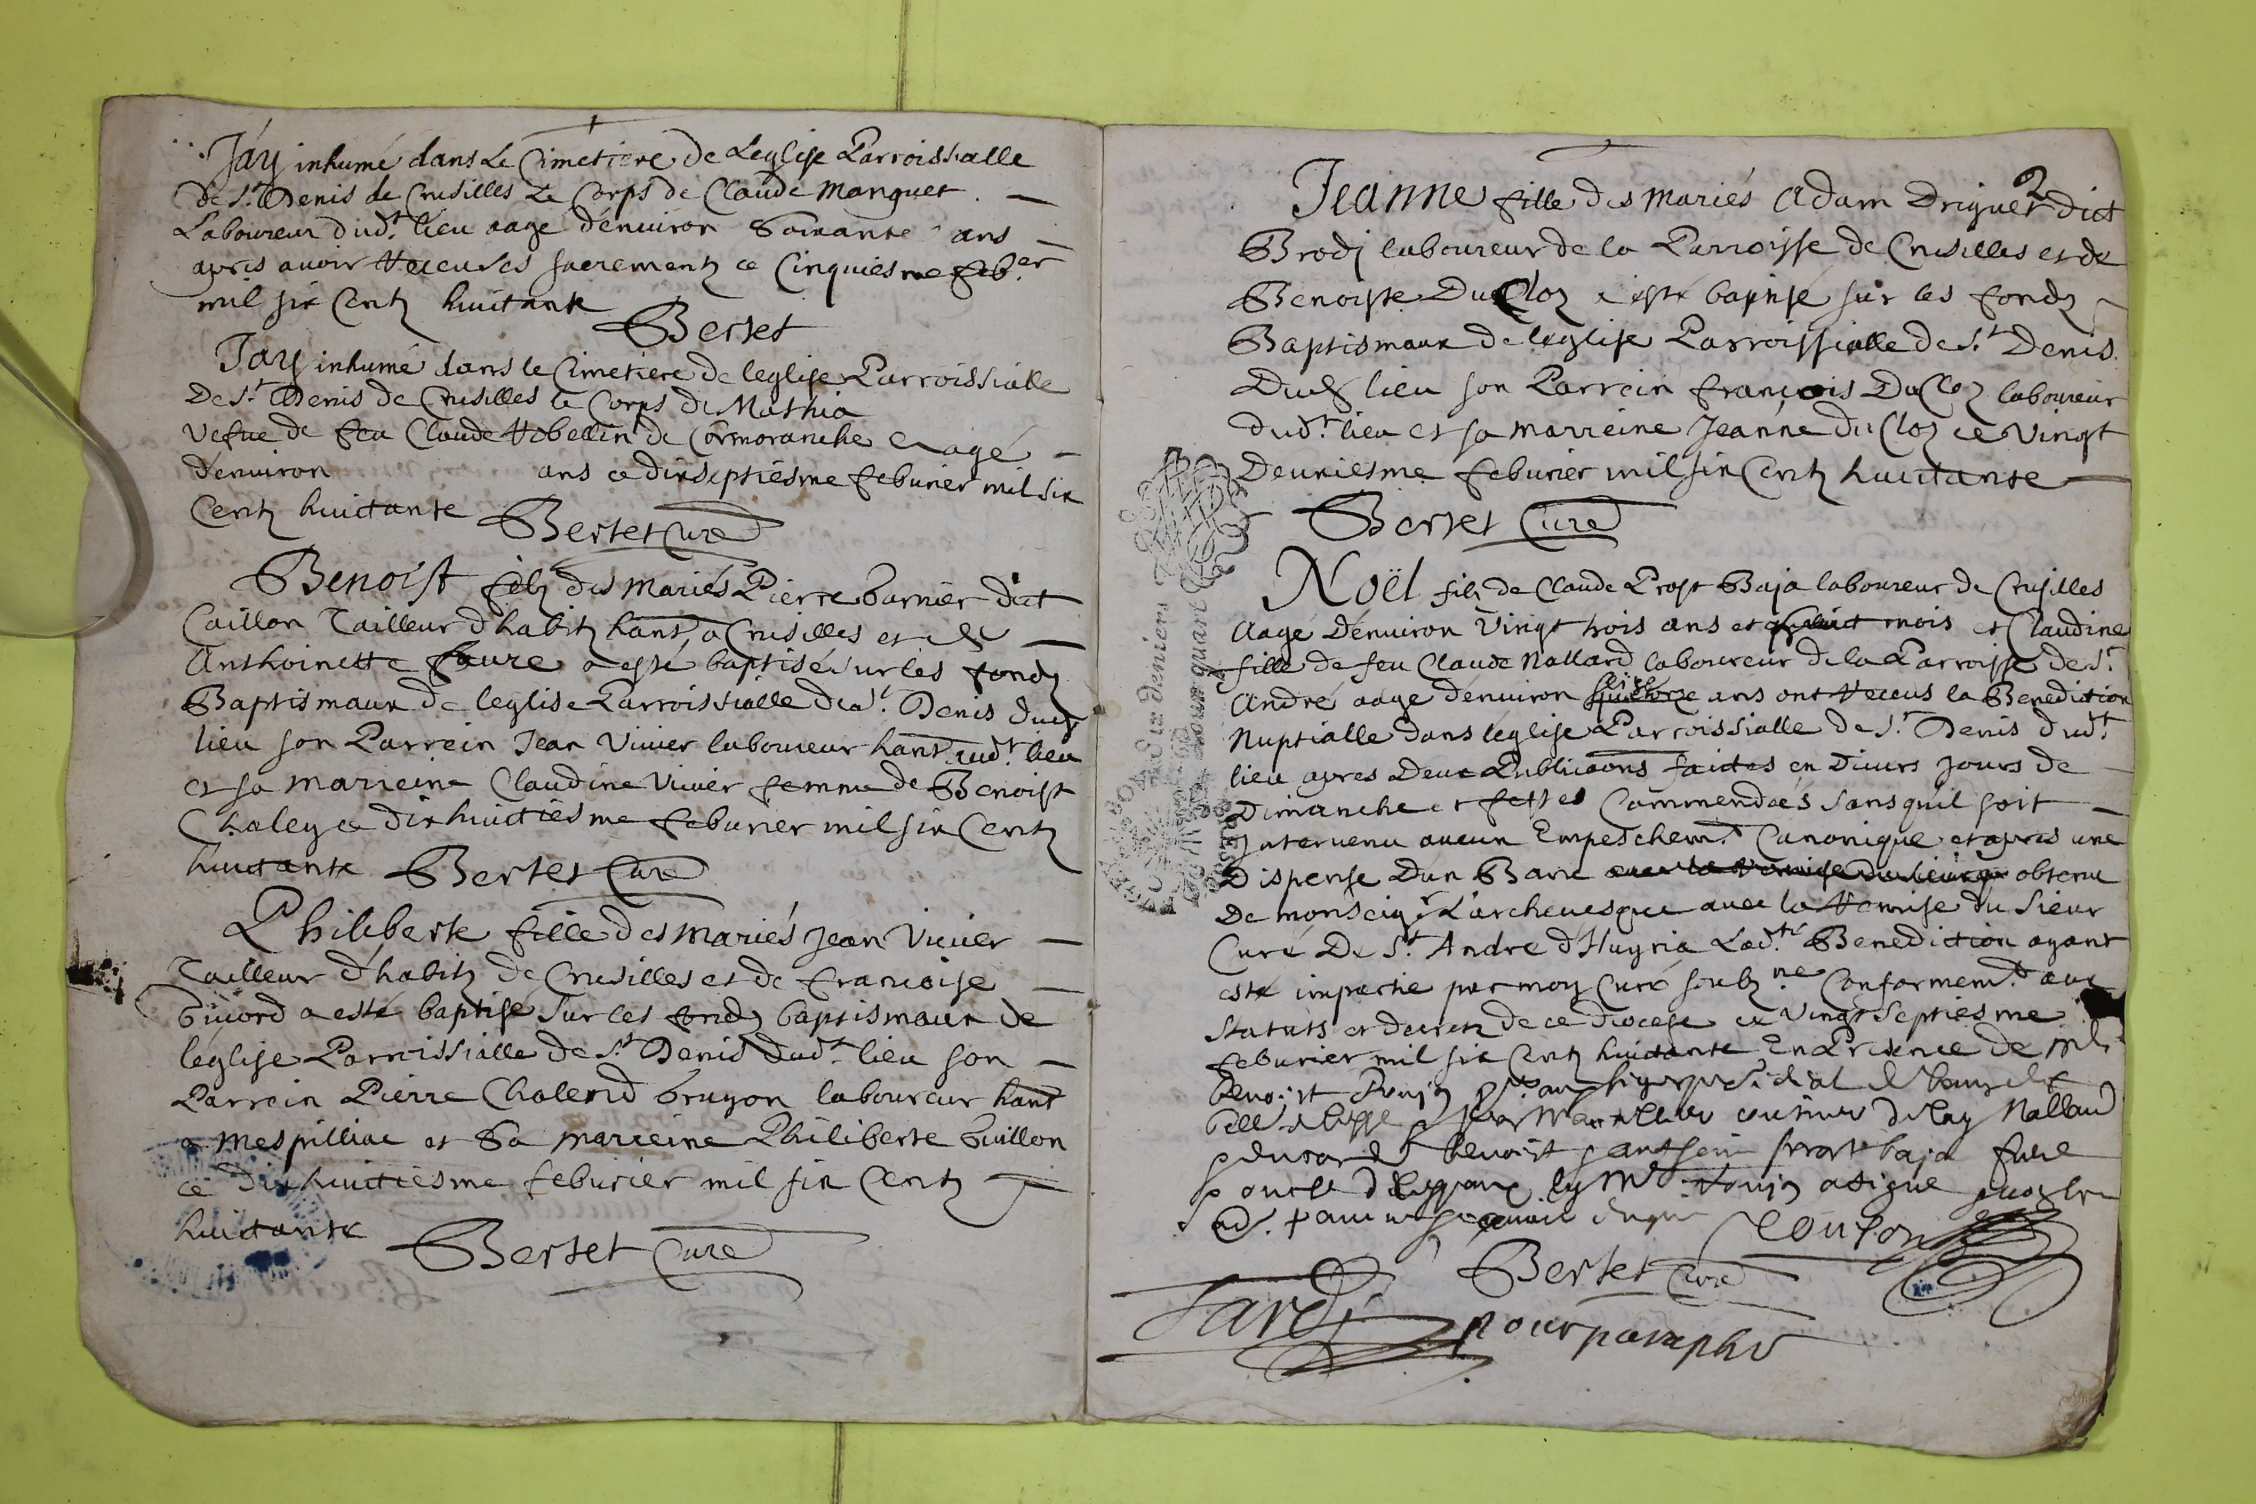 Jay inhumé dans Le Cimetiere de Leglise Parroissialle
de St. Denis de Crusilles Le Corps de Claude Manguet
Laboureur dudt. lieu aagé d'enuiron Soixante ans
apres auoir Receu ses sacrementz ce Cinquiesme feber.
mil six Centz huictante
Bertet
Jay inhumé dans le Cimetiere de leglise Parroissialle
De St. Denis de Crusilles le Corps de Mathia
Vefue de feu Claude Rebellin de Cormoranche agé
d'enuiron ans ce dixseptiesme feburier mil six
Centz huictante
Bertet Curé
Benoist filz des mariés Pierre barnier dict
Caillon Tailleur d'habitz hant. a Crusilles et de
Anthoinette faure a esté baptisé sur les fondz
Baptismaux de leglise Parroissialle de St. Denis dudt
lieu son Parrein Jean Viuier laboureur hant. audt. lieu
et sa marreine Claudine Viuier femme de Benoist
Chaley ce dixhuictiesme feburier mil six Centz
huictante Bertet Curé
Philiberte fille des mariés Jean Viuier
Tailleur d'habitz de Crusilles et de francoise
a esté baptisé sur les fondz baptismaux de
leglise Parroissialle de St. Denis dudt. lieu son
Parrein Pierre Chalend bruyon laboureur hant
a mespilliac et Sa marreine Philiberte buillon
ce dixhuictiesme feburier mil six Centz
huictante
Bertet Curé
2
Jeanne fille des mariés Adam Driguet dict
Brodj laboureur de la Parroisse de Crusilles et de
Benoiste Du Cloz a esté baptisé sur les fondz
Baptismaux de leglise Parroissialle de St. Denis
Dudt lieu son Parrein francois Du Cloz laboureur
dudt. lieu et sa marreine Jeanne du Cloz ce Vingt
Deuxiesme feburier mil six Centz huictante
Bertet Curé
Noël filz de Claude Prost Baja laboureur de Crusilles
Aagé D'enuiron Vingt trois ans et mois et Claudine
fille de feu Claude Nallard laboureur de la Parroisse de St.
André aagé d'enuiron ans ont Receus la Benediction
Nuptialle dans leglise Parroissialle de St. Denis dudt.
lieu apres Deux Publicaons faictes en Diuers Jours de
Dimanche et festes Commendées sans quil soit
Interuenu aucun Empeschemt. Canonique et apres une
Dispense Dun Banc obtenue
De monseigr. L'archeuesque auec la Remise du Sieur
Curé De St. André d'Huyria Ladte. Benediction ayant
esté impartie par moy Curé soubzne. Conformemt. aux
Statuts et decretz de ce diocese ce Vingt Septiesme
feburier mil six Centz huictante En Presence de
benoist
Nallard
benoist prost baja frere
oncle a signé
Bertet Curé
pour paraphe